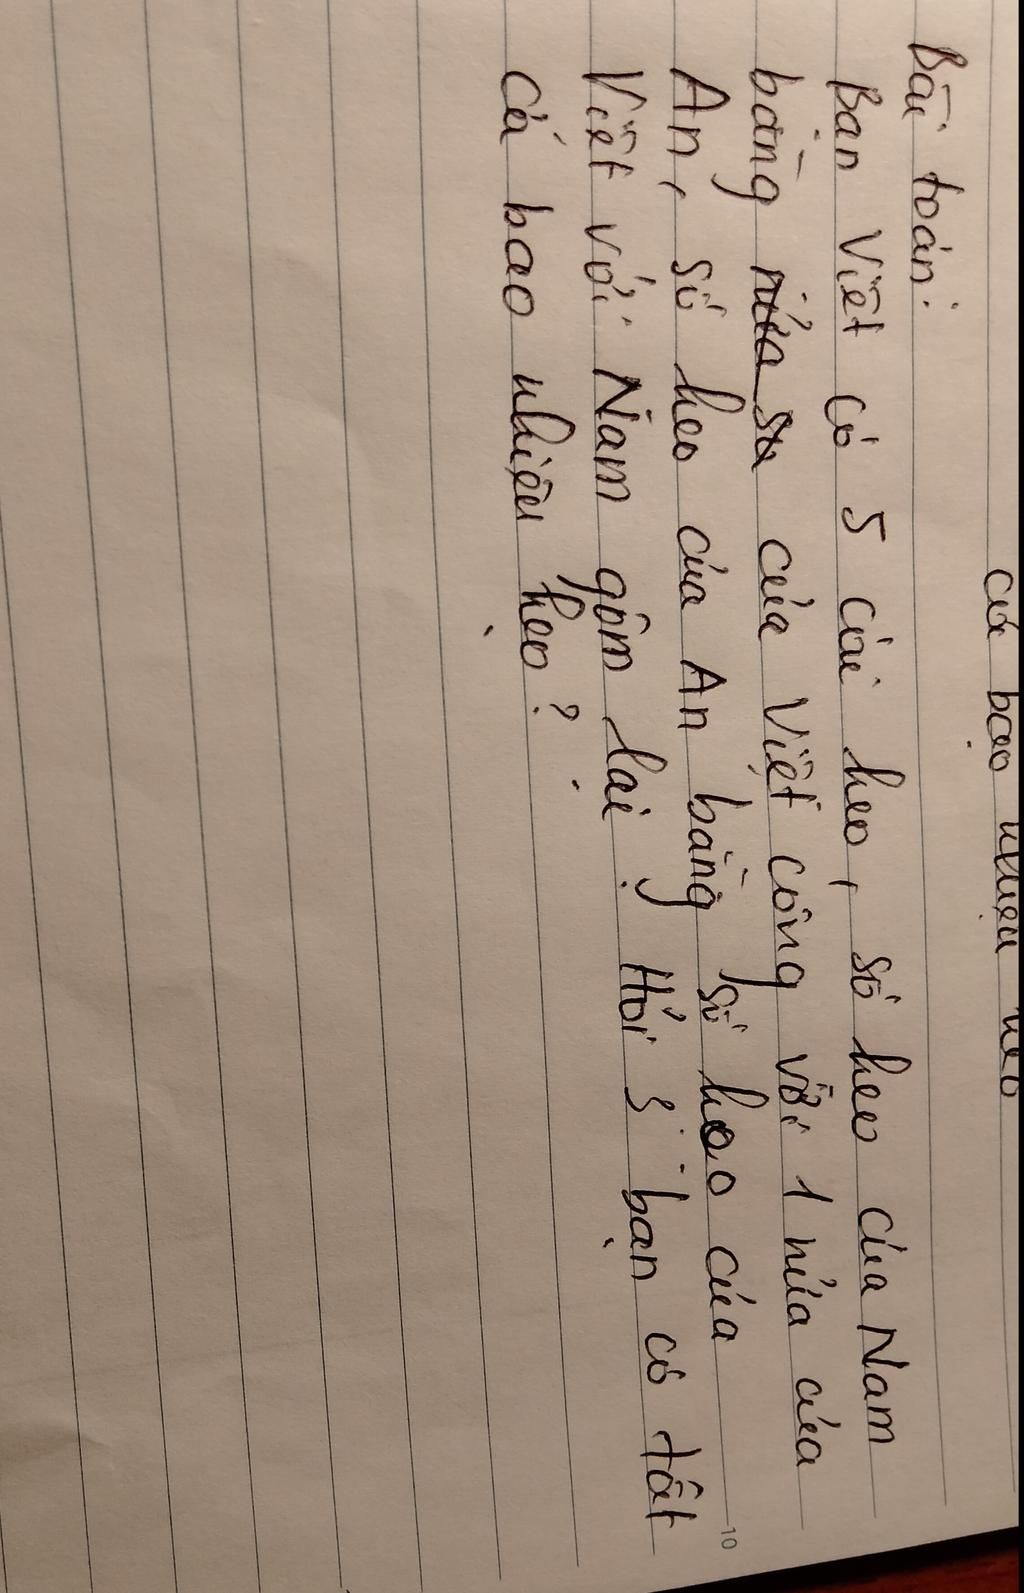 cả bao nhiêu heo
Bài toán:
Bạn Việt có 5 cái heo, số heo của Nam
bằng nửa số của Việt cộng với 1 nửa của
An, số heo của An bằng số heo của
Việt với Nam gộm lại. Hỏi 3 bạn có tất
cả bao nhiêu heo?
10